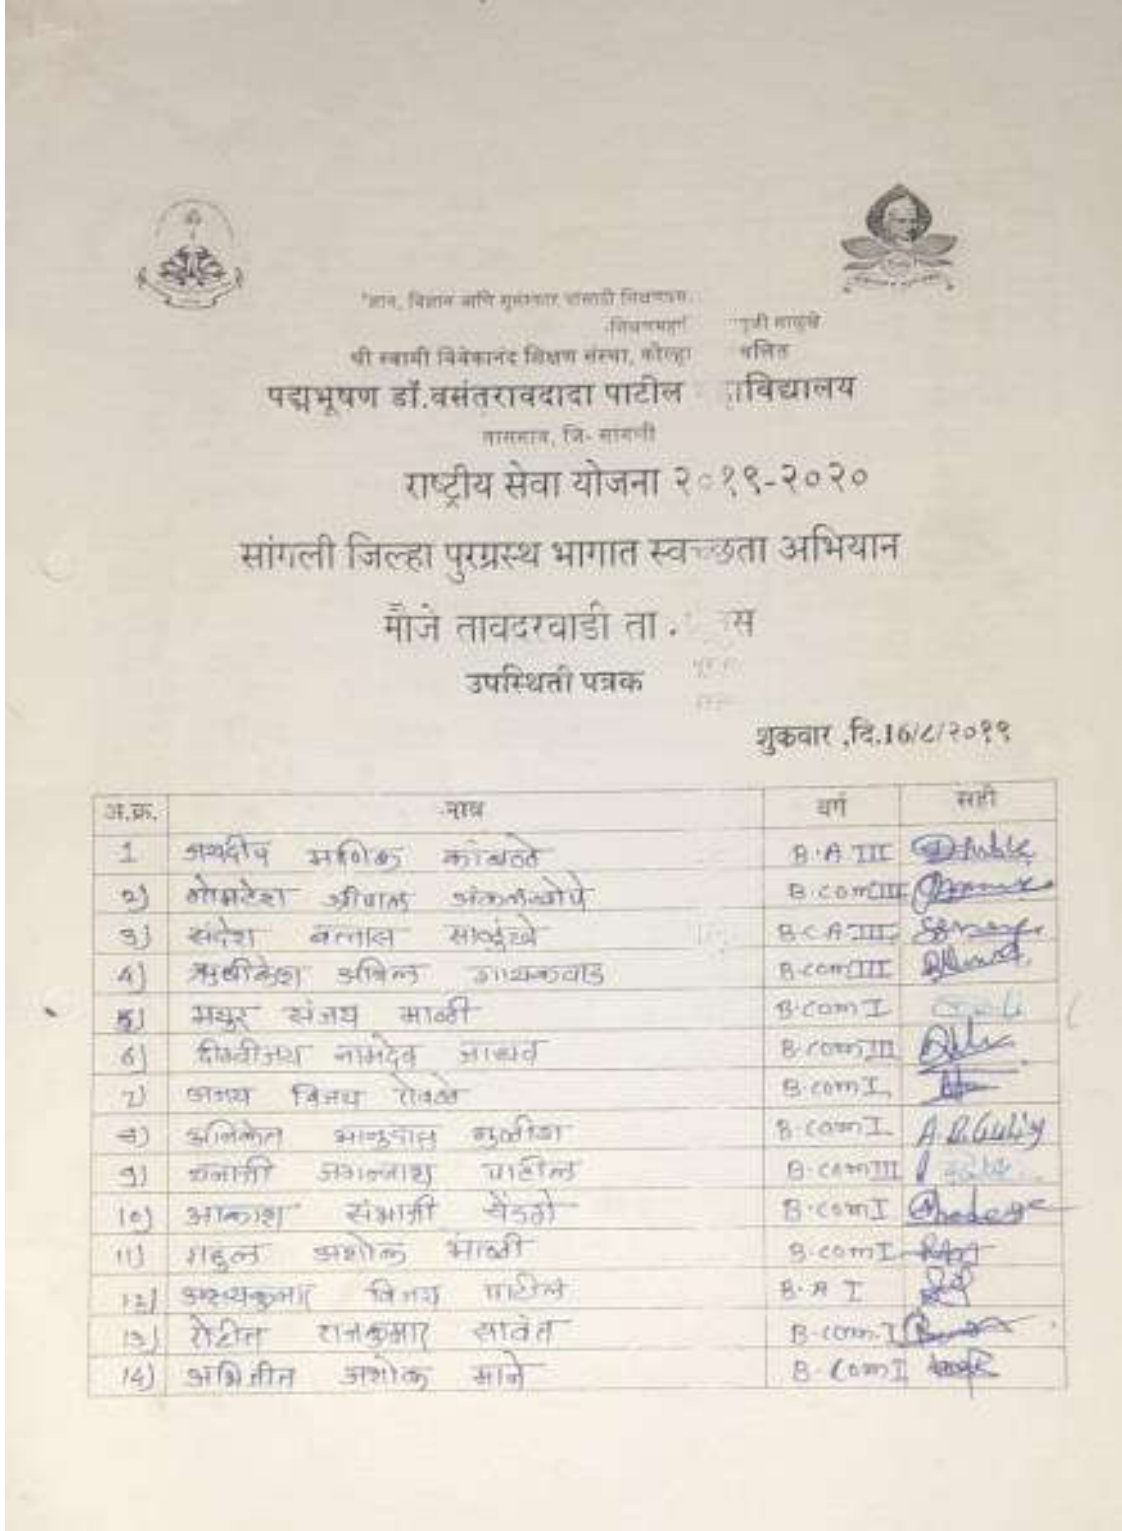 "ज्ञान, विज्ञान आणि सुसंस्कार यासाठी शिक्षणप्रसार
श्री स्वामी विवेकानंद शिक्षण संस्था, कोल्हा
पद्मभूषण डॉ.वसंतरावदादा पाटील विद्यालय
तासगाव, जि- सांगली
राष्ट्रीय सेवा योजना २०१९-२०२०
सांगली जिल्हा पुरग्रस्थ भागात स्वच्छता अभियान
मौजे तावदरवाडी ता . स
उपस्थिती पत्रक
शुक्रवार ,दि.16/८/२०१९
अ.क्र. नाव वर्ग सही
1 जयदीप माणिक कांबळे B.A III
2) गोमटेश श्रीपाल अंकलखोपे B.com III
3) संदेश साळुंखे B.C.A III
4) ऋषीकेश अनिल गायकवाड B.com III
5) मयुर संजय माळी B.com I
6) दिग्वीजय नामदेव जाधव B.com III
7) अजय विजय B.com I
8) अनिकेत B.com I A.B.Gulig
9) धनाजी जगन्नाथ पाटील B.com III
10) आकाश संभाजी B.com I
11) राहुल अशोक माळी B.com I
12) अक्षयकुमार विजय पाटील B.A I
13) रोहीत राजकुमार सावंत B.com.I
14) अभिजीत अशोक माने B.Com I